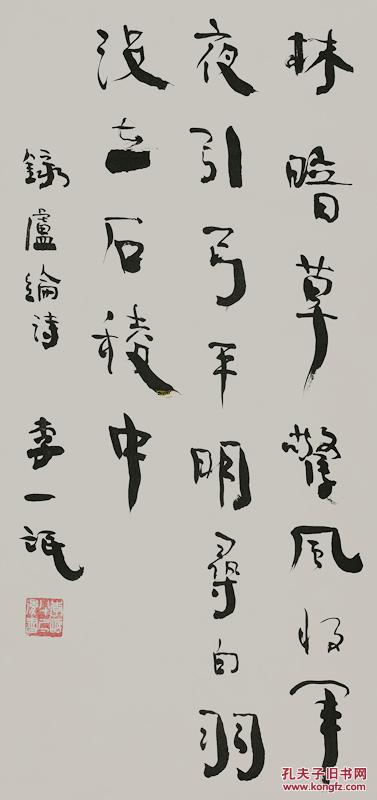 林暗草驚風將軍
夜引弓平明尋白羽
沒在石稜中
録盧綸詩 李一氓
孔夫子旧书网
www.kongfz.com